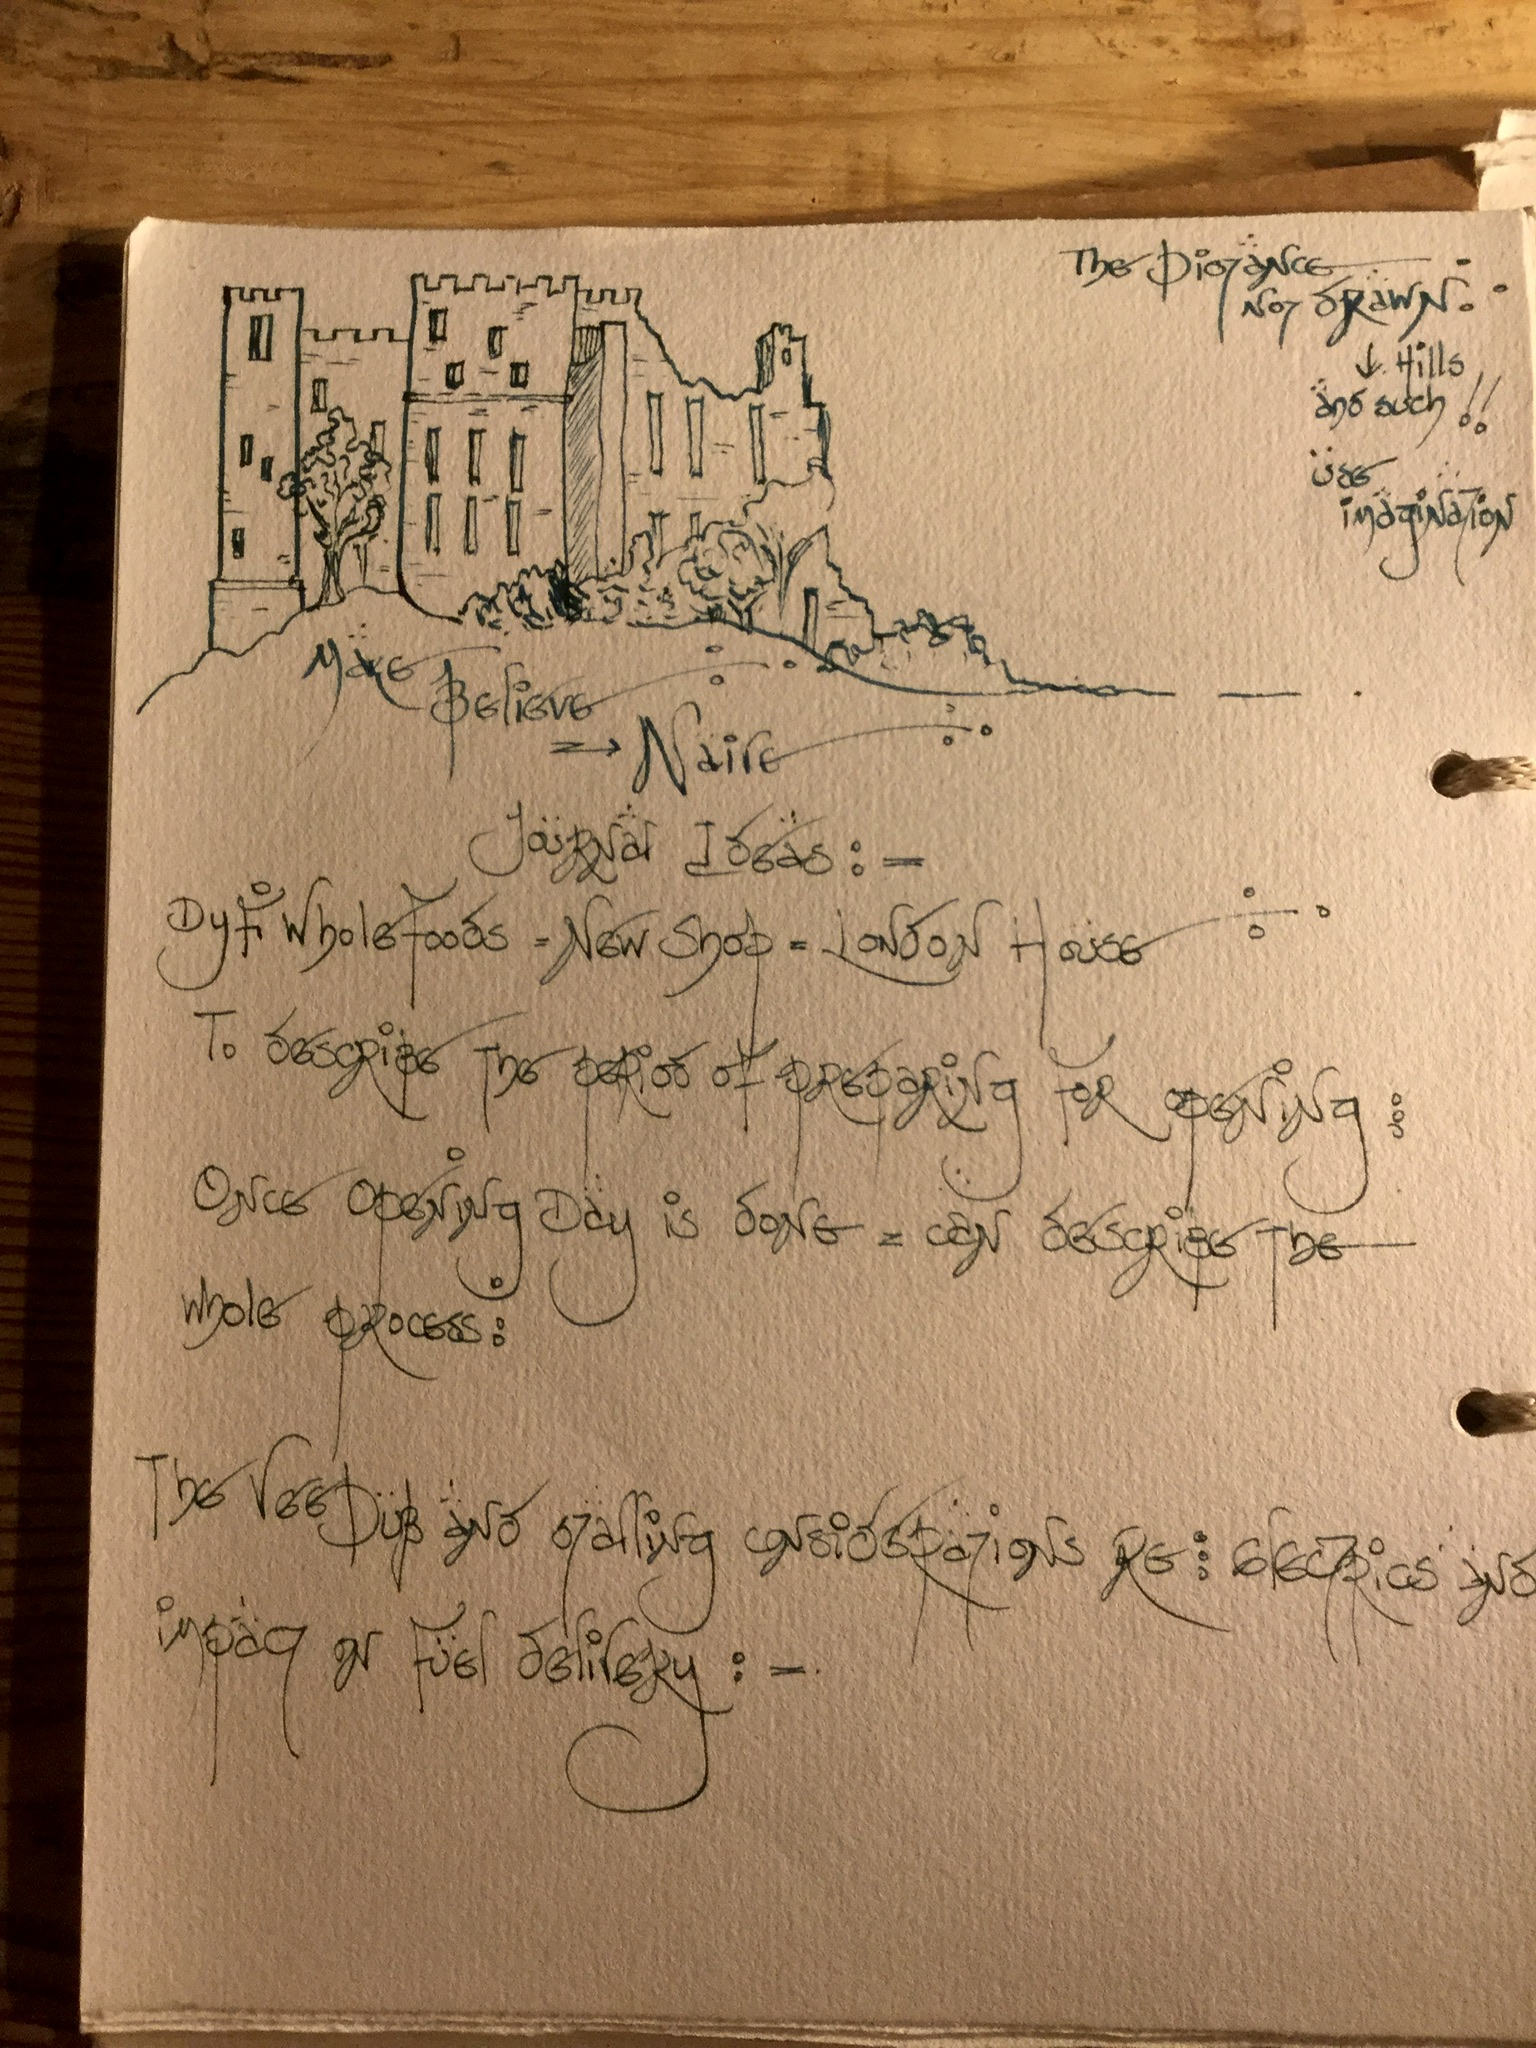 The Distance
Not drawn:
↓ Hills
and such!!
use
imagination
Make
Believe
⇒ Naive
Journal Ideas: —
Dyfi Wholefoods = New Shop = London House
To describe the period of preparing for opening:
Once Opening Day is done = can describe the
whole process:
The Vee Dub and stalling considerations re: electrics and
impact on fuel delivery: —